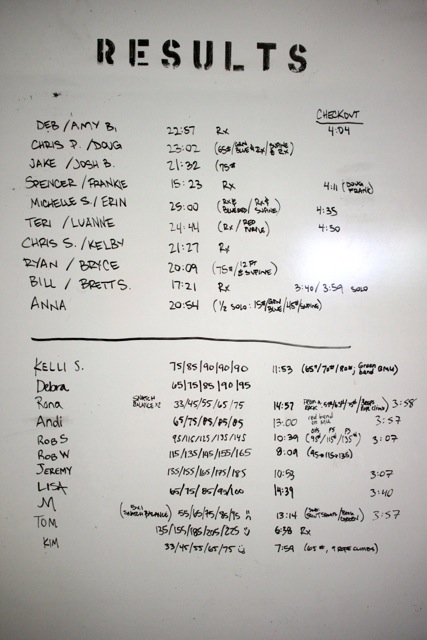 RESULTS
CHECKOUT
DEB / AMY B. 22:57 Rx 4:04
CHRIS P. / DOUG 23:02 (65#/ BLUE & RX/ & RX)
JAKE / JOSH B. 21:32 (75#
SPENCER / FRANKIE 15:23 Rx 4:11 (DOUG FRANK)
MICHELLE S. / ERIN 25:00 (RX & / RX & SUPINE)
TERI / LUANNE 24:44 (RX / RED PURPLE) 4:50
CHRIS S. / KELBY 21:27 Rx
RYAN / BRYCE 20:09 (75# / 12 PT & SUPINE)
BILL / BRETT S. 17:21 Rx 3:40 / 3:59 SOLO
ANNA 20:54 (½ SOLO: 15#/ BLUE/45#/SUPINE)
KELLI S. 75/85/90/90/90 11:53 (65#/70#/80#, Green band)
Debra 65/75/85/90/95
Rona SNATCH BALANCE 33/45/55/65/75 14:57 3:58
Andi 65/75/85/85/85 13:00 red band on MU 3:57
ROB S 95/115/125/135/145 10:39 (95#/115#/135#) 3:07
ROB W 115/135/145/155/165 8:09 (95#/115#/135)
JEREMY 135/155/165/175/185 10:53 3:07
LISA 65/75/85/90/100 14:39 3:40
M (SNATCH BALANCE) 55/65/75/85/95 13:14 3:57
TOM 135/155/185/205/225 6:38 Rx
KIM 33/45/55/65/75 7:59 (65#, 9 ROPE CLIMBS)